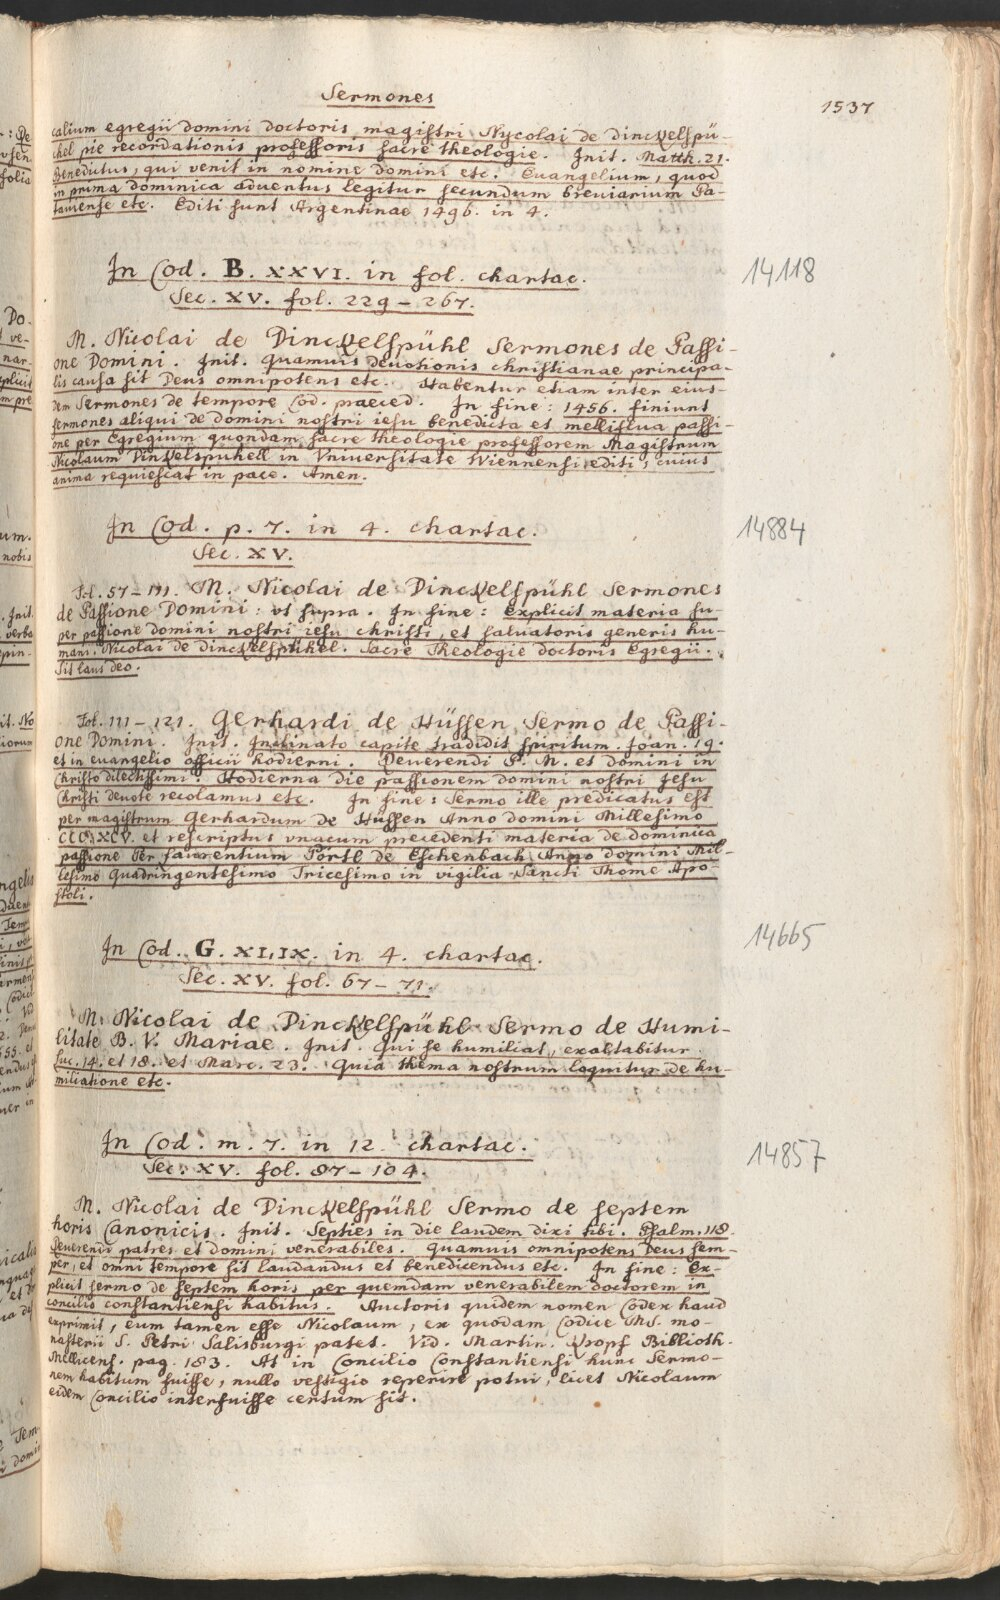 Sermones
1537
calium egregii domini doctoris magistri Nycolai de dinckelspü-
chel pie recordationis professoris sacre theologie. Init. Matth. 21.
Benedictus, qui venit in nomine domini etc. Euangelium, quod
in prima dominica aduentus legitur secundum breviarium Pa-
tauiense etc. Editi sunt Argentinae 1496. in 4.
In Cod. B. XXVI. in fol. chartac.
14118
Sec. XV. fol. 229-267.
M. Nicolai de Dinckelspühl Sermones de Passi-
one Domini. Init. Quamuis deuotionis christianae principa-
lis causa sit Deus omnipotens etc. Habentur etiam inter eius-
dem Sermones de tempore Cod. praeced. In fine: 1456. finiunt
sermones aliqui de domini nostri iesu benedicta et melliflua passi-
one per Egregium quondam sacre theologie professorem Magistrum
Nicolaum Dinkelspuhell in Vniuersitate Wiennensi editi, cuius
anima requiescat in pace. Amen.
In Cod. p. 7. in 4. chartac.
14884
Sec. XV.
Fol. 57-111. M. Nicolai de Dinckelspühl Sermones
de Passione Domini: vt supra. In fine: Explicit materia su-
per passione domini nostri iesu christi, et saluatoris generis hu-
mani. Nicolai de dinckelspühel. Sacre Theologie doctoris Egregii.
Sit laus deo.
Fol. 111-121. Gerhardi de Hüssen Sermo de Passi-
one Domini. Init. Inclinato capite tradidit spiritum. Joan. 19.
et in euangelio officii hodierni. Reuerendi P. M. et domini in
Christo dilectissimi. Hodierna die passionem domini nostri Jesu
Christi deuote recolamus etc. In fine: Sermo ille predicatus est
per magistrum Gerhardum de Hüssen Anno domini Millesimo
CCCXCV. et rescriptus vnacum precedenti materia de dominica
passione Per laurentium Pörtl de Eschenbach Anno domini Mil-
lesimo Quadringentesimo Tricesimo in vigilia Sancti Thome Apo-
stoli.
In Cod. G. XLIX. in 4. chartac.
14665
Sec. XV. fol. 67-71.
M. Nicolai de Dinckelspühl Sermo de Humi-
litate B. V. Mariae. Init. Qui se humiliat, exaltabitur.
Luc. 14. et 18. et Marc. 23. Quia thema nostrum loquitur de hu-
miliatione etc.
In Cod. m. 7. in 12. chartac.
14857
Sec. XV. fol. 87-104.
M. Nicolai de Dinckelspühl Sermo de septem
horis Canonicis. Init. Septies in die laudem dixi tibi. Psalm. 118.
Reuerendi patres et domini venerabiles. Quamuis omnipotens Deus sem-
per, et omni tempore sit laudandus et benedicendus etc. In fine: Ex-
plicit sermo de septem horis per quemdam venerabilem doctorem in
concilio constantiensi habitus. Auctoris quidem nomen Codex haud
exprimit, eum tamen esse Nicolaum, ex quodam Codice MS. mo-
nasterii S. Petri Salisburgi patet. Vid. Martin. Kropf Biblioth.
Mellicens. pag. 183. At in Concilio Constantiensi hunc Sermo-
nem habitum fuisse, nullo vestigio reperire potui, licet Nicolaum
eidem Concilio interfuisse certum sit.